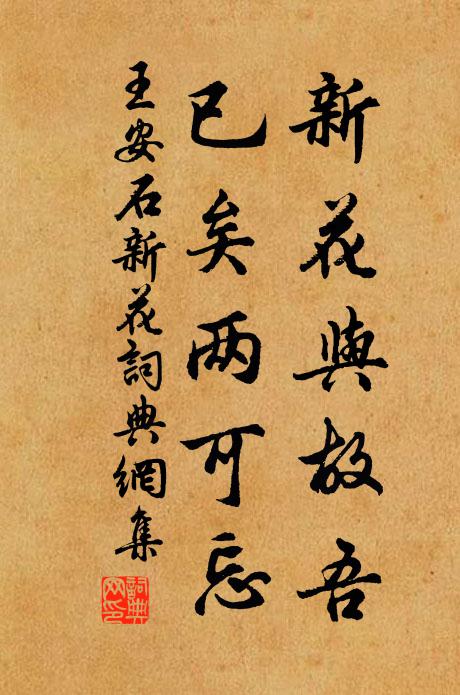 新花與故吾
已矣两可忘
王安石新花詞典網集
詞典
网印